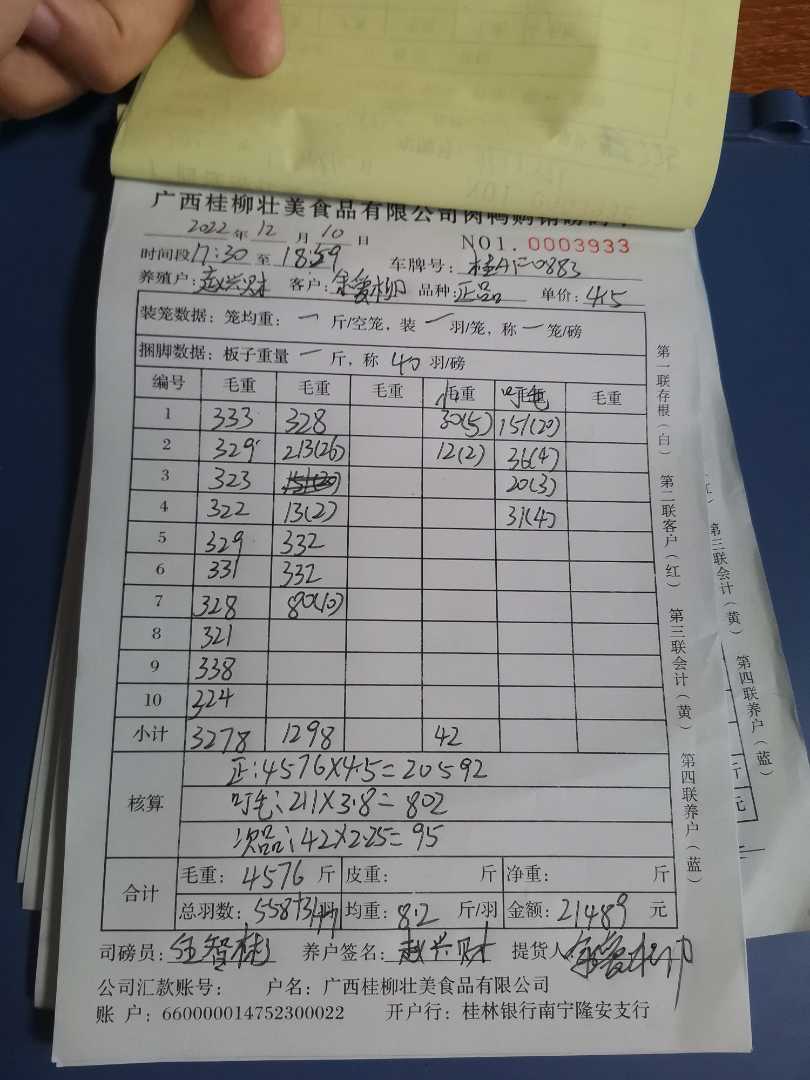 广西桂柳壮美食品有限公司肉鸭购销磅码单
2022年 12 月 10 日 NO1. 0003933
时间段 17:30 至 18:59 车牌号：桂AF-0883
养殖户：赵兴财 客户： 品种：正品 单价：4.5
装笼数据：笼均重：一 斤/空笼，装 一 羽/笼，称 一 笼/磅
捆脚数据：板子重量 一 斤，称 40 羽/磅
编号 毛重 毛重 毛重 毛重 叮毛 毛重
1 333 328 30(5) 151(20)
2 329 213(26) 12(2) 36(4)
3 323 151(20) 20(3)
4 322 13(2) 31(4)
5 329 332
6 331 332
7 328 80(10)
8 321
9 338
10 324
小计 3278 1298 42
核算
正：4576×4.5=20592
叮毛：211×3.8=802
次品：42×2.25=95
合计
毛重：4576 斤 皮重： 斤 净重： 斤
总羽数：558+31+7羽 均重：8.2 斤/羽 金额：21489 元
司磅员： 养户签名：赵兴财 提货人
公司汇款账号： 户名：广西桂柳壮美食品有限公司
账 户：660000014752300022 开户行：桂林银行南宁隆安支行
第一联存根（白）
第二联客户（红）
第三联会计（黄）
第四联养户（蓝）
第三联会计（黄）
第四联养户（蓝）
斤
元